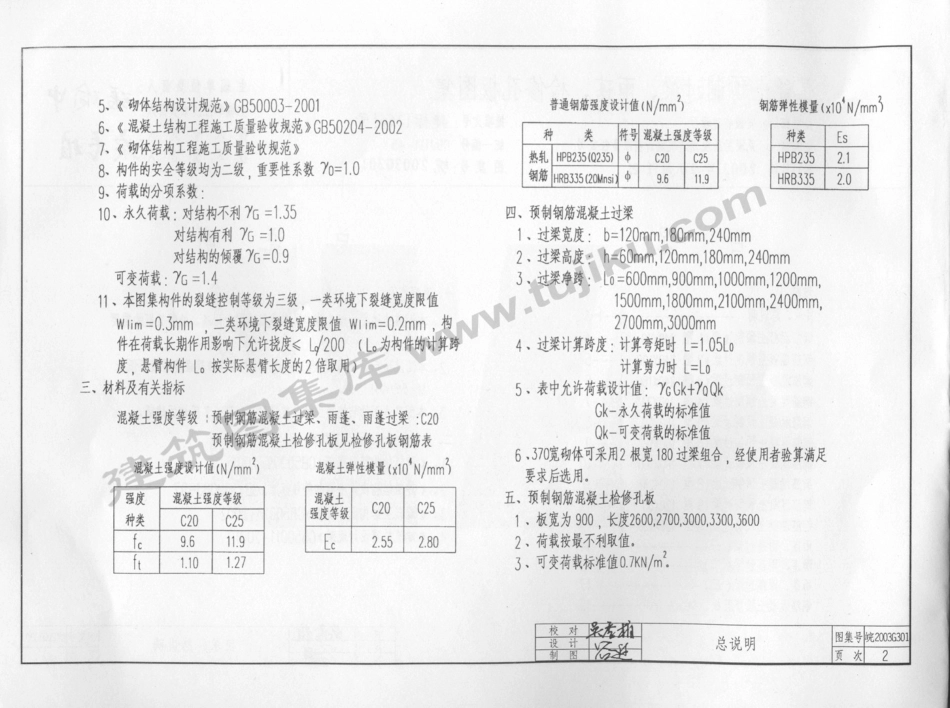 5、《砌体结构设计规范》GB50003-2001
6、《混凝土结构工程施工质量验收规范》GB50204-2002
7、《砌体结构工程施工质量验收规范》
8、构件的安全等级均为二级，重要性系数 γo=1.0
9、荷载的分项系数：
10、永久荷载：对结构不利 γG =1.35
对结构有利 γG =1.0
对结构的倾覆 γG=0.9
可变荷载：γG =1.4
11、本图集构件的裂缝控制等级为三级，一类环境下裂缝宽度限值
Wlim=0.3mm ，二类环境下裂缝宽度限值 Wlim=0.2mm ，构
件在荷载长期作用影响下允许挠度≤ Lo/200 （Lo为构件的计算跨
度，悬臂构件 Lo 按实际悬臂长度的2倍取用）
三、材料及有关指标
混凝土强度等级：预制钢筋混凝土过梁、雨蓬、雨蓬过梁 :C20
预制钢筋混凝土检修孔板见检修孔板钢筋表
混凝土强度设计值(N/mm²)
强度种类 混凝土强度等级
C20 C25
fc 9.6 11.9
ft 1.10 1.27
混凝土弹性模量(x10⁴N/mm²)
混凝土强度等级 C20 C25
Ec 2.55 2.80
普通钢筋强度设计值(N/mm²)
种 类 符号 混凝土强度等级
热轧钢筋 HPB235(Q235) ф C20 C25
HRB335(20Mnsi) ф 9.6 11.9
钢筋弹性模量(x10⁴N/mm²)
种类 Es
HPB235 2.1
HRB335 2.0
四、预制钢筋混凝土过梁
1、过梁宽度：b=120mm,180mm,240mm
2、过梁高度：h=60mm,120mm,180mm,240mm
3、过梁净跨：Lo=600mm,900mm,1000mm,1200mm,
1500mm,1800mm,2100mm,2400mm,
2700mm,3000mm
4、过梁计算跨度：计算弯矩时 L=1.05Lo
计算剪力时 L=Lo
5、表中允许荷载设计值：γGGk+γQQk
Gk-永久荷载的标准值
Qk-可变荷载的标准值
6、370宽砌体可采用2 根宽180过梁组合，经使用者验算满足
要求后选用。
五、预制钢筋混凝土检修孔板
1、板宽为900，长度2600,2700,3000,3300,3600
2、荷载按最不利取值。
3、可变荷载标准值0.7KN/m²。
校 对
设 计
制 图
总说明
图集号 皖2003G301
页 次 2
建筑图集库 www.tujiku.com